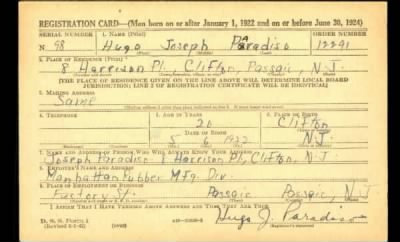 REGISTRATION CARD—(Men born on or after January 1, 1922 and on or before June 30, 1924)
SERIAL NUMBER 1. NAME (Print) ORDER NUMBER
N 98 Hugo Joseph Paradiso 12291
2. PLACE OF RESIDENCE (Print)
8 Harrison Pl., Clifton, Passaic, N.J.
[THE PLACE OF RESIDENCE GIVEN ON THE LINE ABOVE WILL DETERMINE LOCAL BOARD
JURISDICTION; LINE 2 OF REGISTRATION CERTIFICATE WILL BE IDENTICAL]
3. MAILING ADDRESS
Same
4. TELEPHONE 5. AGE IN YEARS 6. PLACE OF BIRTH
20 Clifton
DATE OF BIRTH
8 6 1922 N.J.
7. NAME AND ADDRESS OF PERSON WHO WILL ALWAYS KNOW YOUR ADDRESS
Joseph Paradiso 8 Harrison Pl, Clifton, N.J.
8. EMPLOYER'S NAME AND ADDRESS
Manhattan Rubber Mfg. Div.
9. PLACE OF EMPLOYMENT OR BUSINESS
Factory St. Passaic Passaic, N.J.
I AFFIRM THAT I HAVE VERIFIED ABOVE ANSWERS AND THAT THEY ARE TRUE.
Hugo J. Paradiso